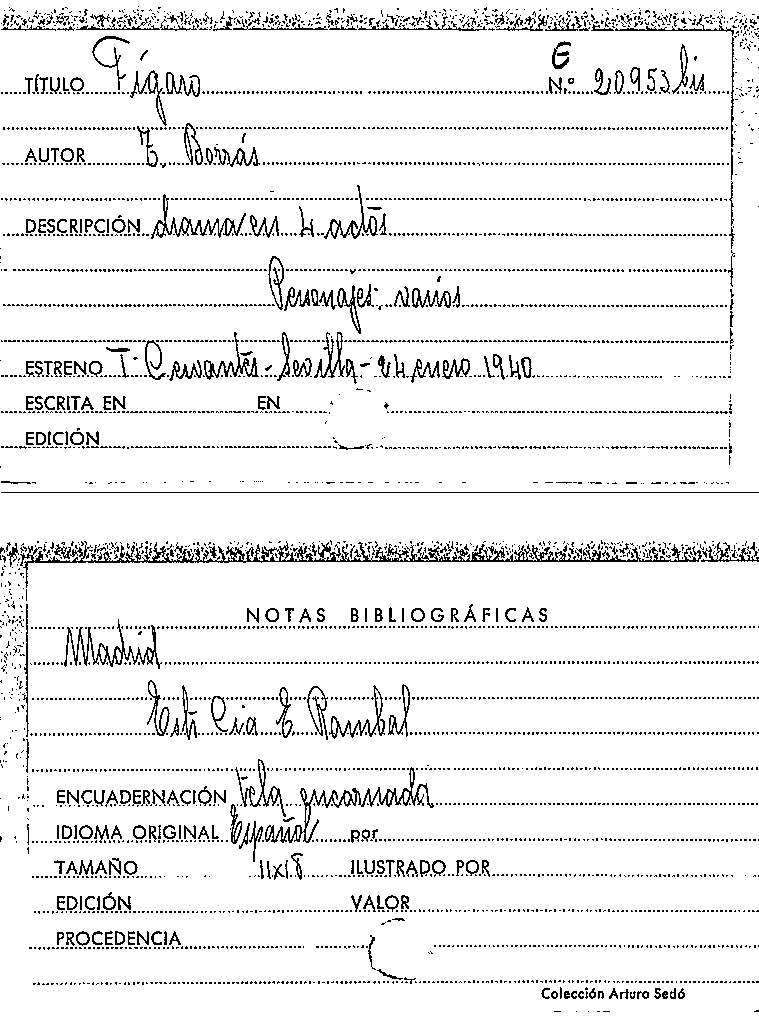 E
TÍTULO Fígaro N.º 20953 bis
AUTOR T. Borrás
DESCRIPCIÓN drama en 4 actos
Personajes: varios
ESTRENO T. Cervantes - Sevilla - 24 enero 1940
ESCRITA EN EN
EDICIÓN
NOTAS BIBLIOGRÁFICAS
Madrid
Estr Cia E Rambal
ENCUADERNACIÓN tela encarnada
IDIOMA ORIGINAL Español por
TAMAÑO 11x18 ILUSTRADO POR
EDICIÓN VALOR
PROCEDENCIA
Colección Arturo Sedó